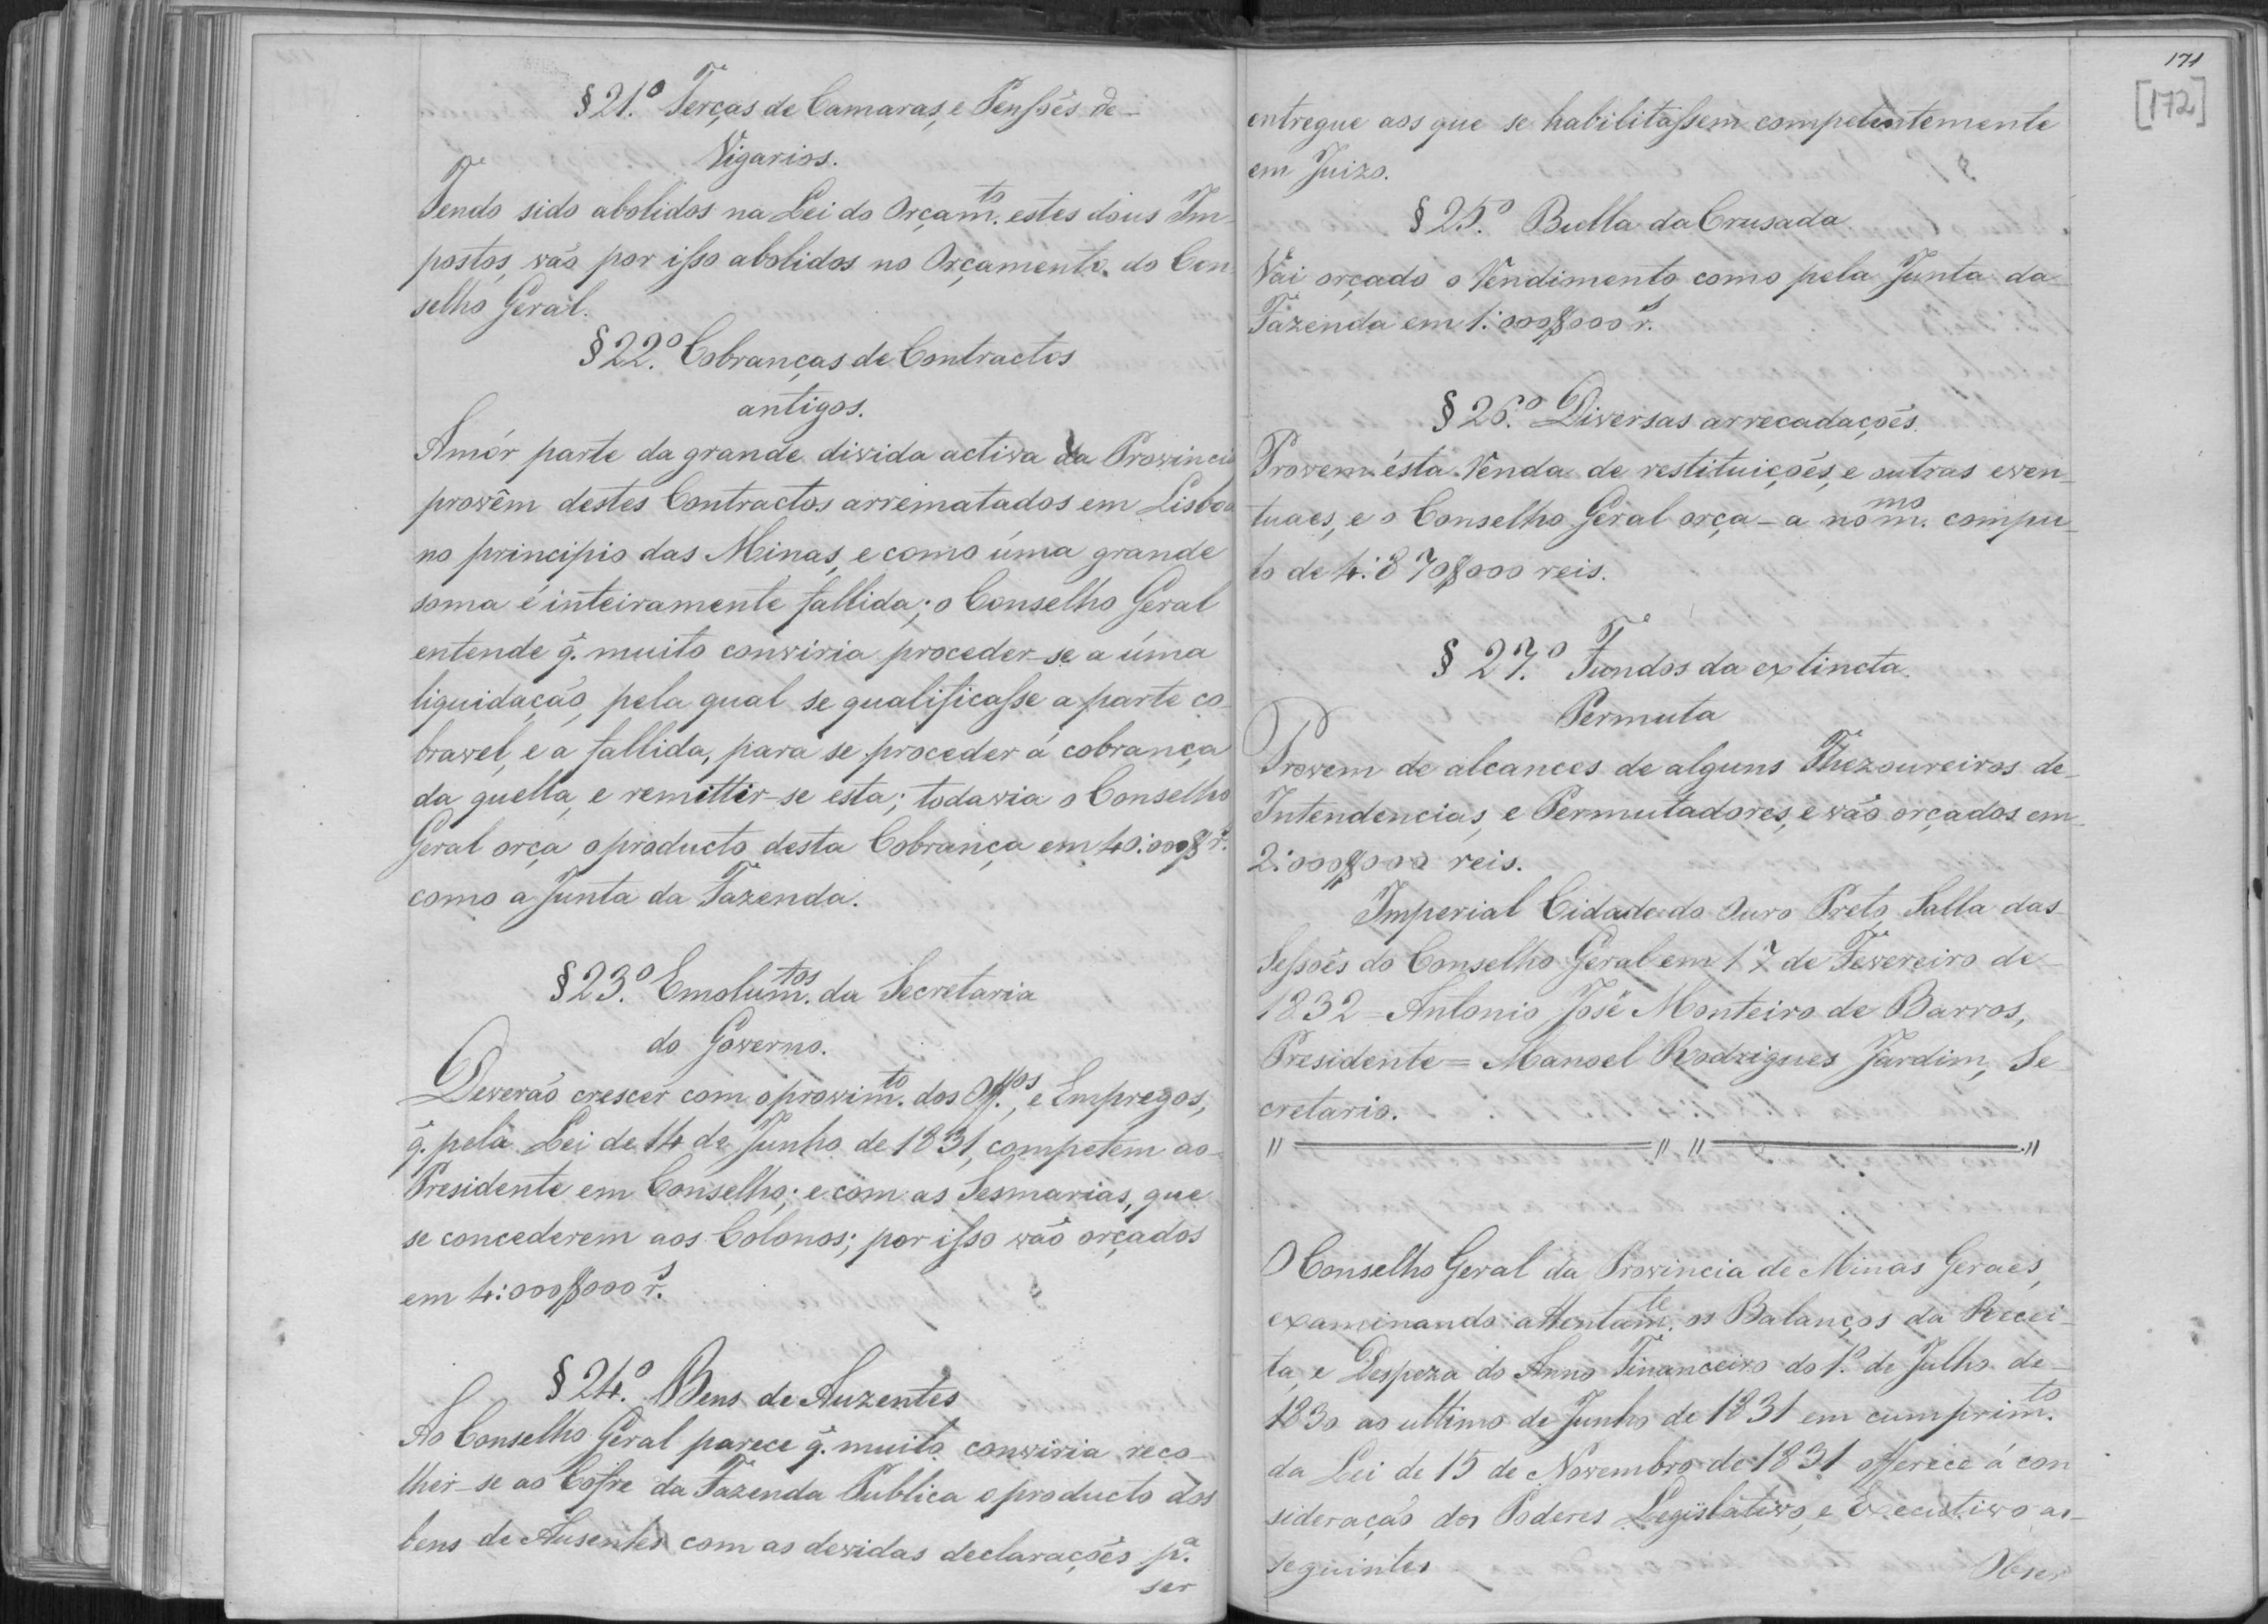 § 21.º Terças de Camaras, e Penssões de
Vigarios.
Tendo sido abolidos na Lei do Orçam.to estes dous Im-
postos, vão por isso abolidos no Orçamento do Con
selho Geral.
§ 22.º Cobranças de Contractos
antigos.
A mór parte da grande divida activa da Provincia
provêm destes Contractos arrematados em Lisboa
no principio das Minas, e como úma grande
soma é inteiramente fallida; o Conselho Geral
entende q̃. muito conviria proceder-se a úma
liquidação, pela qual se qualificasse a parte co-
bravel, e a fallida, para se proceder á cobrança
da quella, e remittir-se esta; todavia o Conselho
Geral orça o producto desta Cobrança em 40:000$ r.s
como a Junta da Fazenda.
§ 23.º Emolum.tos da Secretaria
do Governo.
Deverão crescer com o provim.to dos Off.os, e Empregos,
q̃. pela Lei de 14 de Junho de 1831, competem ao
Presidente em Conselho; e com as Sesmarias, que
se concederem aos Colonos; por isso vão orçados
em 4:000$000 r.s
§ 24.º Bens de Auzentes
Ao Conselho Geral parece q̃. muito conviria reco-
lher-se ao Cofre da Fazenda Publica o producto dos
bens de Ausentes com as devidas declarações p.a
ser
171
[172]
entregue aos que se habilitassem competentemente
em Juizo.
§ 25.º Bulla da Crusada
Vai orçado o Rendimento como pela Junta da
Fazenda em 1:000$000 r.s
§ 26.º Diversas arrecadações.
Provem ésta Renda de restituições, e outras even-
tuaes, e o Conselho Geral orça-a no m.mo compu-
to de 4:870$000 reis.
§ 27.º Fundos da extincta
Permuta
Provem de alcances de alguns Thezoureiros de
Intendencias, e Permutadores, e vão orçados em
2:000$000 reis.
Imperial Cidade do Ouro Preto, Salla das
Sessões do Conselho Geral em 17 de Fevereiro de
1832 = Antonio José Monteiro de Barros,
Presidente = Manoel Rodrigues Jardim, Se
cretario.
O Conselho Geral da Provincia de Minas Geraes,
examinando attentam.te os Balanços da Recei-
ta, e Despeza do Anno Financeiro do 1.º de Julho de
1830 ao ultimo de Junho de 1831 em cumprim.to
da Lei de 15 de Novembro de 1831 offerece á con
sideração dos Poderes Legislativo, e Executivo as
seguintes Obser